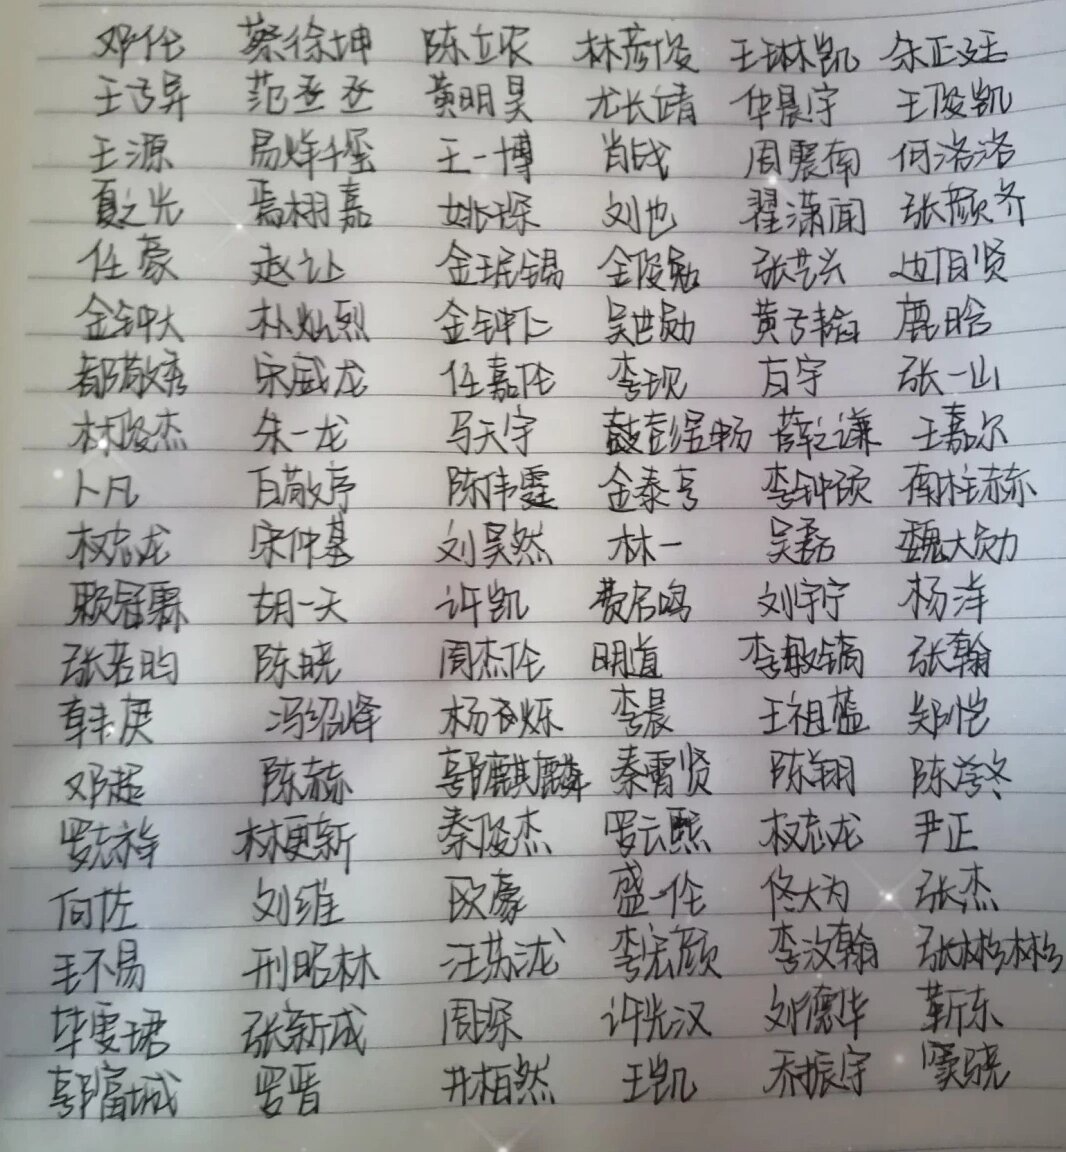 邓伦 蔡徐坤 陈立农 林彦俊 王琳凯 朱正廷
王子异 范丞丞 黄明昊 尤长靖 华晨宇 王俊凯
王源 易烊千玺 王一博 肖战 周震南 何洛洛
夏之光 焉栩嘉 姚琛 刘也 翟潇闻 张颜齐
任豪 赵让 金珉锡 金俊勉 张艺兴 边伯贤
金钟大 朴灿烈 金钟仁 吴世勋 黄子韬 鹿晗
都敬秀 宋威龙 任嘉伦 李现 方宇 张一山
林俊杰 朱一龙 马天宇 彭昱畅 薛之谦 王嘉尔
卜凡 白敬亭 陈伟霆 金泰亨 李钟硕 南柱赫
权志龙 宋仲基 刘昊然 林一 吴磊 魏大勋
赖冠霖 胡一天 许凯 费启鸣 刘宇宁 杨洋
张若昀 陈晓 周杰伦 明道 李敏镐 张翰
韩庚 冯绍峰 杨烁 李晨 王祖蓝 郑恺
邓超 陈赫 郭麒麟 秦霄贤 陈翔 陈学冬
罗志祥 林更新 秦俊杰 罗云熙 权志龙 尹正
向佐 刘维 欧豪 盛一伦 佟大为 张杰
毛不易 刑昭林 汪苏泷 李宏颜 李汶翰 张彬彬
毕雯珺 张新成 周琛 许光汉 刘德华 靳东
郭富城 罗晋 井柏然 王凯 乔振宇 窦骁